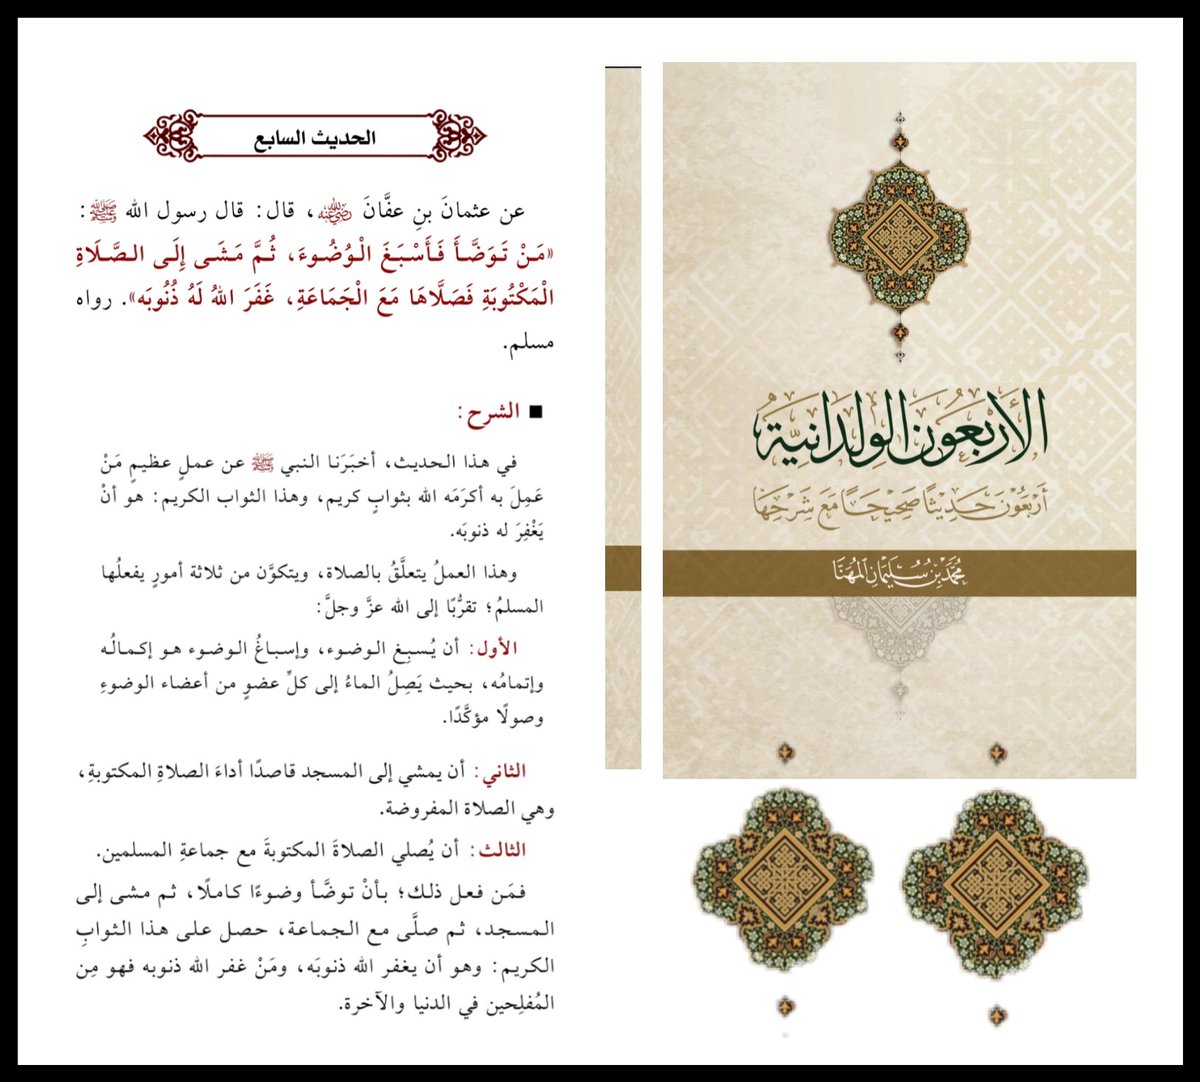 الحديث السابع
عن عثمانَ بنِ عفَّانَ رضي الله عنه، قال: قال رسول الله ﷺ:
«مَنْ تَوَضَّأَ فَأَسْبَغَ الْوُضُوءَ، ثُمَّ مَشَى إِلَى الصَّلَاةِ
الْمَكْتُوبَةِ فَصَلَّاهَا مَعَ الْجَمَاعَةِ، غَفَرَ اللهُ لَهُ ذُنُوبَه». رواه
مسلم.
■ الشرح:
في هذا الحديث، أخبَرَنا النبي ﷺ عن عملٍ عظيمٍ مَنْ
عَمِلَ به أكرَمَه الله بثوابٍ كريم، وهذا الثواب الكريم: هو أنْ
يَغْفِرَ له ذنوبَه.
وهذا العملُ يتعلَّقُ بالصلاة، ويتكوَّن من ثلاثة أمورٍ يفعلُها
المسلمُ؛ تقرُّبًا إلى الله عزَّ وجلَّ:
الأول: أن يُسبِغ الوضوء، وإسباغُ الوضوء هو إكمالُه
وإتمامُه، بحيث يَصِلُ الماءُ إلى كلِّ عضوٍ من أعضاء الوضوءِ
وصولًا مؤكَّدًا.
الثاني: أن يمشي إلى المسجد قاصدًا أداءَ الصلاةِ المكتوبةِ،
وهي الصلاة المفروضة.
الثالث: أن يُصلي الصلاةَ المكتوبةَ مع جماعةِ المسلمين.
فمَن فعل ذلك؛ بأنْ توضَّأ وضوءًا كاملًا، ثم مشى إلى
المسجد، ثم صلَّى مع الجماعة، حصل على هذا الثوابِ
الكريم: وهو أن يغفر الله ذنوبَه، ومَنْ غفر الله ذنوبه فهو مِن
المُفلِحين في الدنيا والآخرة.
الأَرْبَعُونَ الوِلْدَانِيَّة
أَرْبَعُوْنَ حَدِيْثًا صَحِيْحًا مَعَ شَرْحِهَا
مُحَمَّد بْن سُلَيْمَان المُهَنَّا